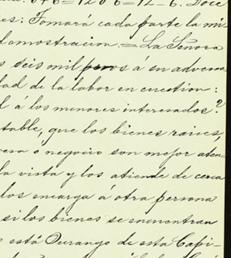 6=12 0 6=12-6. Doce
es: Tomará cada parte la mi
demostracion = La Señora
s seis mil pesos á su advena
dad de la labor en cuestion:
l á los menores interesados?
table, que los bienes raices,
cesa ó negocio son mejor aten
la vista y los atiende de cerca
los encarga á otra persona
si los bienes se encontran
está Durango de esta Capi-